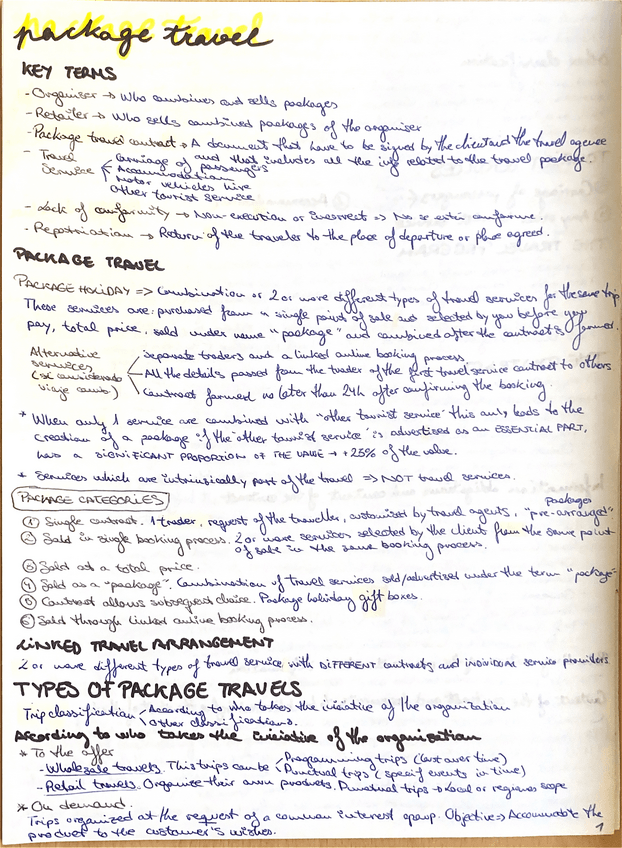 package travel
KEY TERMS
- Organiser → Who combines and sells packages
- Retailer → Who sells combined packages of the organiser
- Package travel contract → A document that have to be signed by the client and the travel agence
and that includes all the info related to the travel package.
- Travel Service
Carriage of passengers
Accommodation
Motor vehicles hire
Other tourist service
- Lack of conformity → Non-execution or incorrect => No se está conforme.
- Repatriation → Return of the traveler to the place of departure or place agreed.
PACKAGE TRAVEL
PACKAGE HOLIDAY => Combination or 2 or more different types of travel services for the same trip
These services are: purchased from a single point of sale selected by you before you
pay, total price, sold under name "package" and combined after the contract is formed.
Alternative services (se considerado viaje comb)
Separate traders and a linked online booking process.
All the details passed from the trader of the first travel service contract to others
Contract formed no later than 24h after confirming the booking.
* When only 1 service are combined with "other tourist service" this only leads to the
creation of a package if the other tourist service is advertised as an ESSENTIAL PART,
has a SIGNIFICANT PROPORTION OF THE VALUE → +25% of the value.
* Services which are intrinsically part of the travel => NOT travel services.
PACKAGE CATEGORIES
packages
① Single contract. 1 trader, request of the traveller, customized by travel agents, "pre-arranged"
② Sold in single booking process. 2 or more services selected by the client from the same point
of sale in the same booking process.
③ Sold at a total price.
④ Sold as a "package". Combination of travel services sold/advertised under the term "package"
⑤ Contract allows subsequent choice. Package holiday gift boxes.
⑥ Sold through linked online booking process.
LINKED TRAVEL ARRANGEMENT
2 or more different types of travel service with DIFFERENT contracts and individual service providers
TYPES OF PACKAGE TRAVELS
Trip classification
According to who takes the iniciative of the organization
Other classifications.
According to who takes the iniciative of the organisation
* To the offer
- Wholesale travels. This trips can be
Programming trips (last over time)
Punctual trips (specif events in time)
- Retail travels. Organize their own products. Punctual trips → Local or regions scope
* On demand.
Trips organized at the request of a common interest group. Objective => Accommodate the
product to the customer's wishes.
1